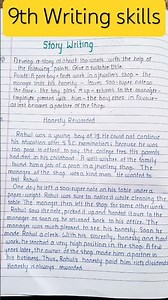 9th Writing skills
Story Writing
Develop a story of about 100 words with the help of
the following points. Give a suitable title.
Point: A poor boy - finds work in a junior's shop - the
manager tests his honesty - leaves 500-rupee note on
the floor - the boy picks it up - returns to the manager -
manager pleased with him - the boy rises in favour -
at last becomes a partner of the shop.
Honesty Rewarded
Rahul was a young boy of 18. He could not continue
his education after S.S.C. examination, because he was
too poor to afford to pay the college fees. His parents
had died in his childhood. A well-wisher of the family
found him a job of a peon in a jewellery shop. The
manager of the shop was a kind man. He wanted to
test Rahul.
One day he left a 500-rupee note on his table under a
paper-weight. Rahul was sure to notice it while cleaning the
table. The manager then left the shop for some other work.
Rahul saw the note, picked it up and handed it over to the
manager as soon as he returned back to his office. The
manager was much pleased to see his honesty. Soon he
made Rahul a clerk. With his sincerity, honesty and hard
work, he reached a very high position in the shop. A few
years later, the owner of the shop made him a partner in
his business. Thus, Rahul's honesty paid him rich dividends.
Honesty is always rewarded.